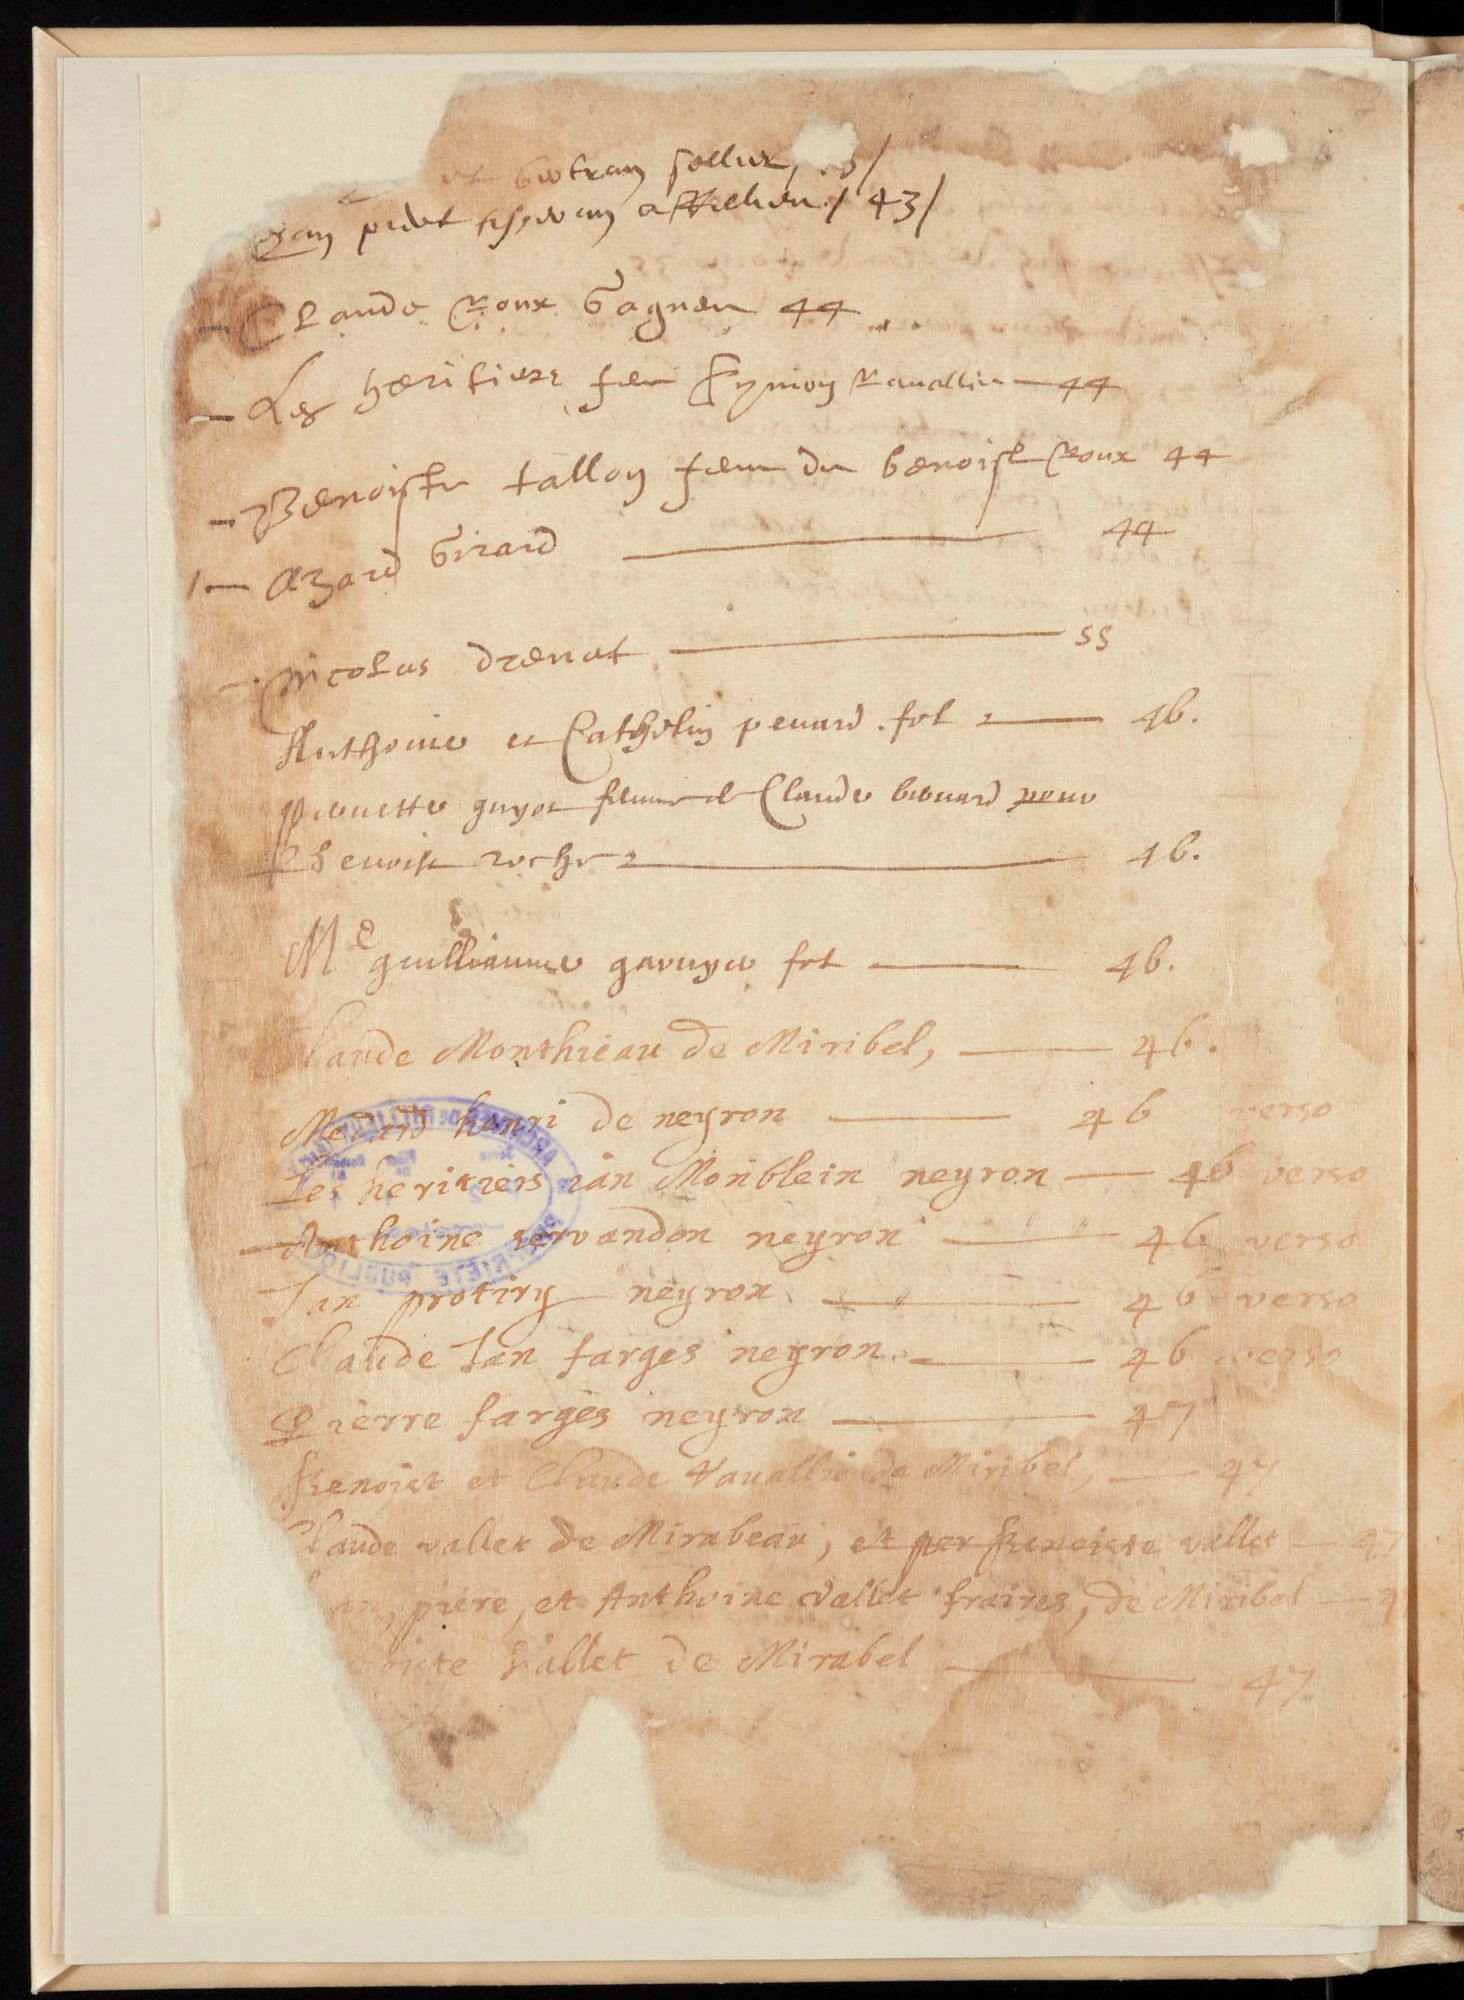 et
pidet 43/
Claude Roux Gagneu 44
Les heritiers feu Eymon Rauallie 44
Benoiste tallon feme du benoist Roux 44
Azard Girard 44
Nicolas drenat 55
Anthoine et Cathelin penard fol 46.
pernette guyot femme de Claude benard
benoist roche 46.
Me guilliaume fol 46.
laude Monthieau de Miribel, 46.
Medard henri de neyron 46 verso
Les heritiers ian Monblein neyron 46 verso
Anthoine servandon neyron 46 verso
Jan protiry neyron 46 verso
Claude Jan farges neyron 46 verso
Pierre farges neyron 47
Benoist et Claude Vauallie de Miribel, 47
laude vallet de Mirabeau, et per Benoiste vallet 47
an, piere, et Anthoine Vallet fraires, de Miribel 4
oiste Vallet de Mirabel 47
PUBLIQUE